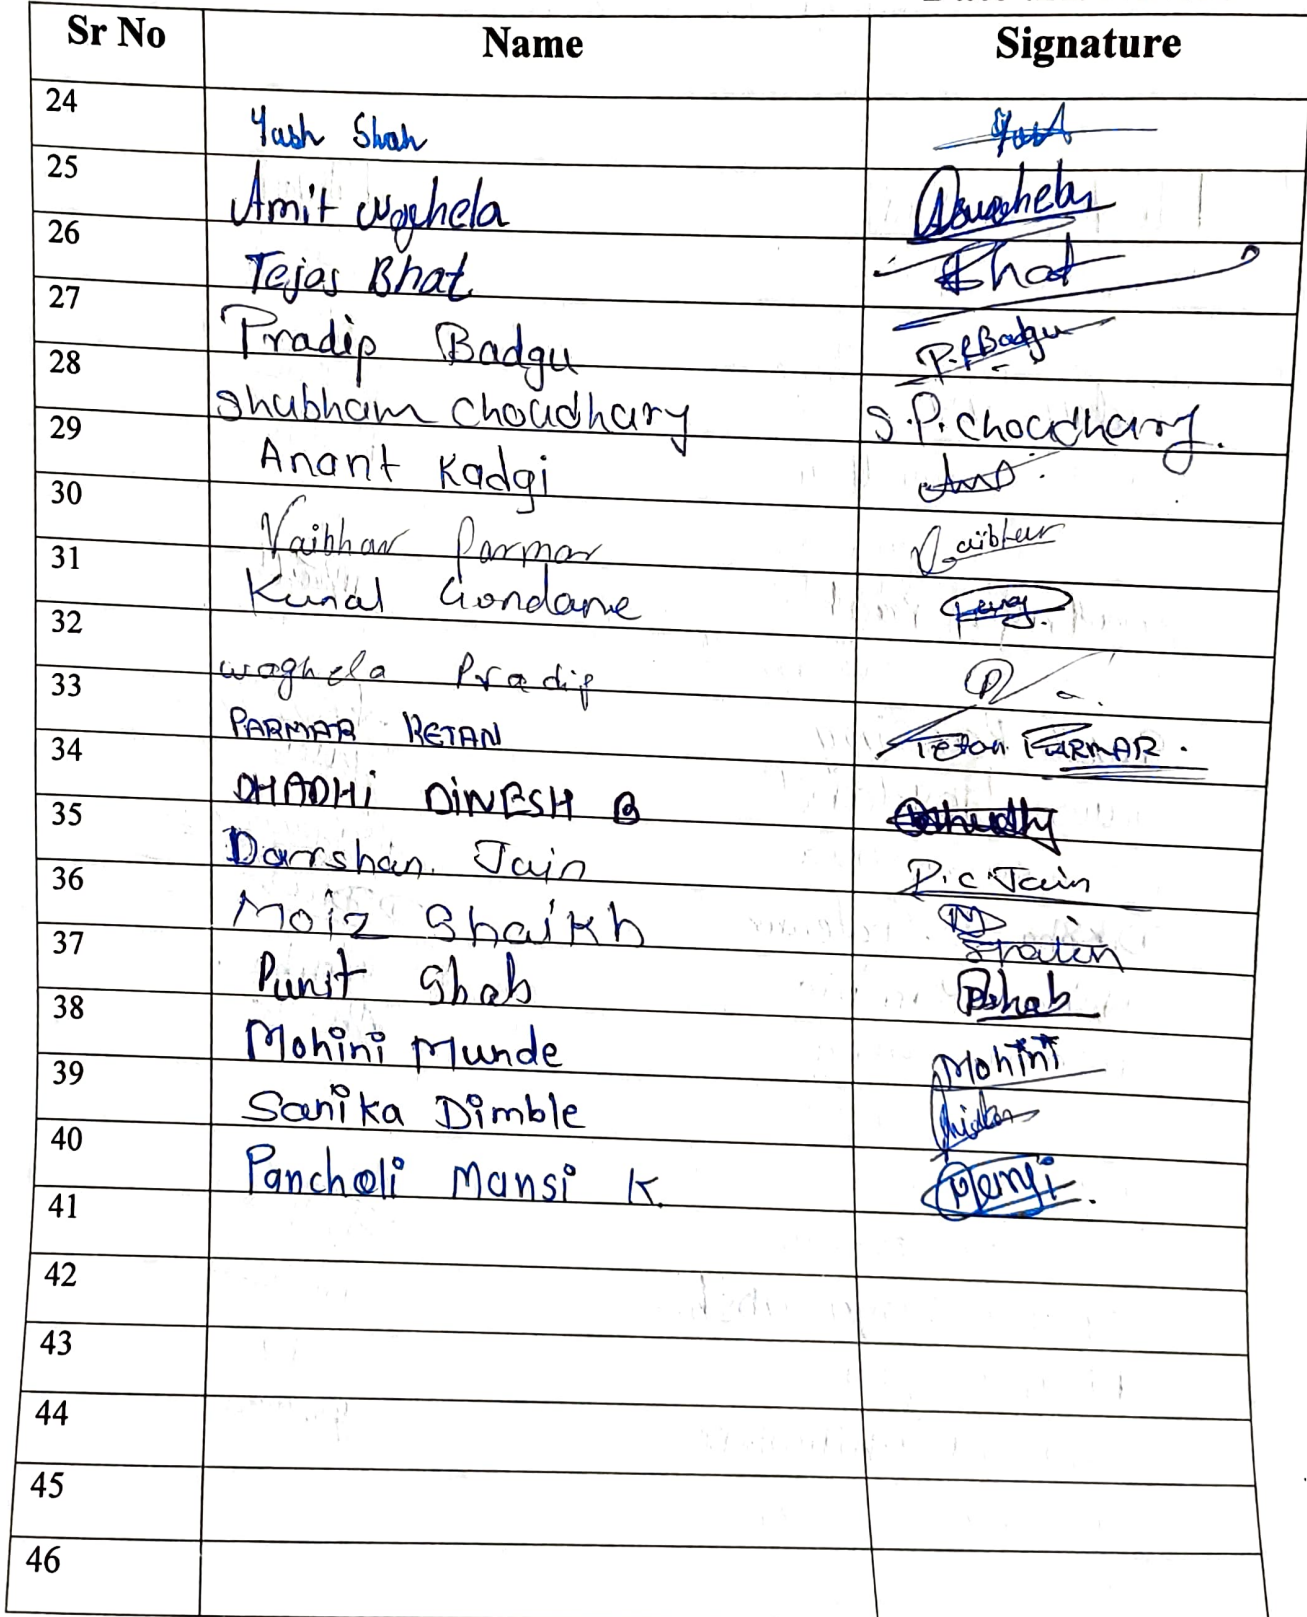 Sr No Name Signature
24 Yash Shah Yash
25 Amit Waghela
26 Tejas Bhat Bhat
27 Pradip Badgu P.R Badgu
28 Shubham Choudhary S.P. Choudhary.
29 Anant Kadgi
30 Vaibhav Parmar Vaibhav
31 Kunal Gondane
32 waghela Pradip
33 PARMAR KETAN Ketan PARMAR.
34 DHADHI DINESH B
35 Darrshan. Jain D.C Jain
36 Moiz Shaikh
37 Punit Shah PShah
38 Mohini Munde Mohini
39 Sanika Dimble
40 Pancholi Mansi K.
41
42
43
44
45
46